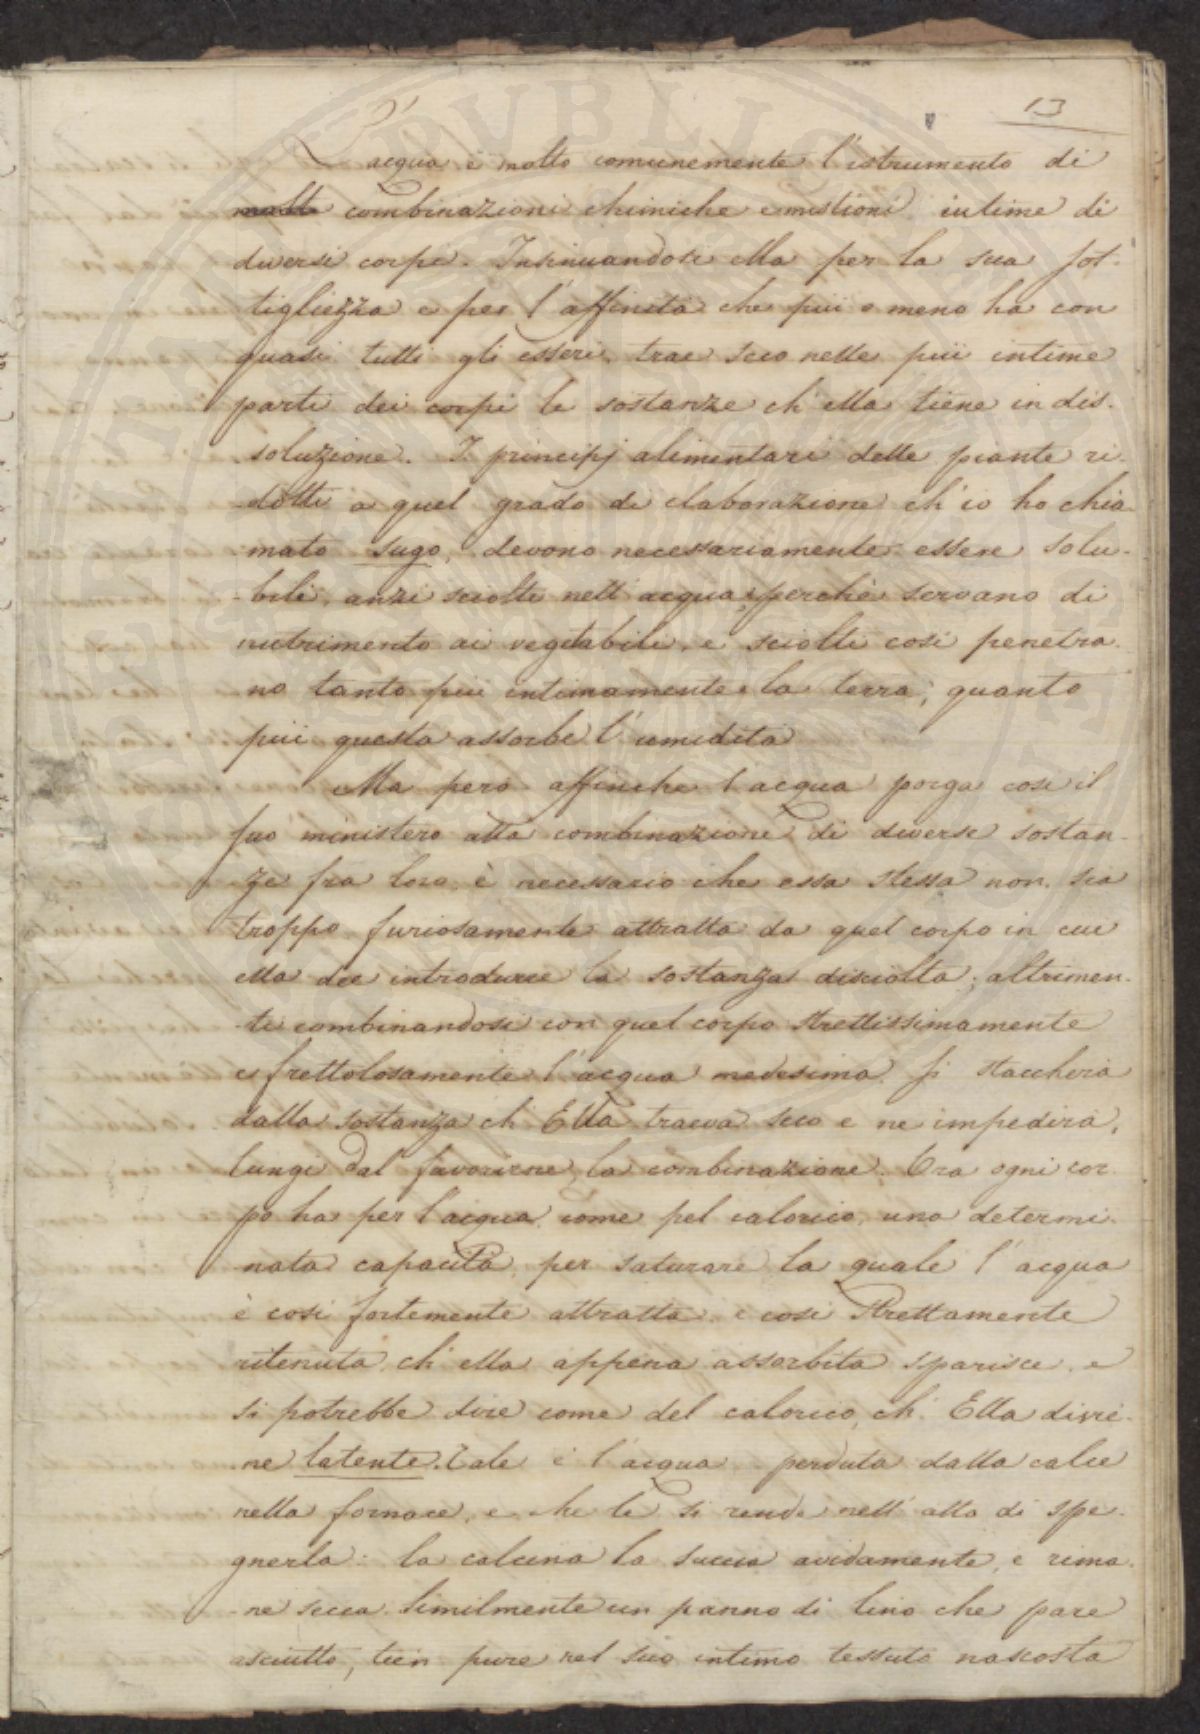 13
L'acqua è molto comunemente l'istrumento di
molte combinazioni chimiche e mistioni intime di
diversi corpi. Insinuandosi ella per la sua sot-
tigliezza e per l'affinità che più o meno ha con
quasi tutti gli esseri, trae seco nelle più intime
parti dei corpi le sostanze ch'ella tiene in dis-
soluzione. I principj alimentari delle piante ri-
-dotti a quel grado di elaborazione ch'io ho chia-
mato sugo, devono necessariamente essere solu-
-bili, anzi sciolti nell'acqua, perchè servano di
nutrimento ai vegetabili, e sciolti così penetra-
no tanto più intimamente la terra, quanto
più questa assorbe l'umidità
Ma però affinchè l'acqua porga così il
suo ministero alla combinazione di diverse sostan-
ze fra loro, è necessario che essa stessa non sia
troppo furiosamente attratta da quel corpo in cui
ella dee introdurre la sostanza disciolta; altrimen-
-ti combinandosi con quel corpo strettissimamente
e frettolosamente l'acqua medesima si staccherà
dalla sostanza ch'Ella traeva seco e ne impedirà,
lungi dal favorirne, la combinazione. Ora ogni cor-
po ha per l'acqua, come pel calorico, una determi-
nata capacità, per saturare la quale l'acqua
è così fortemente attratta, e così strettamente
ritenuta, ch'ella appena assorbita sparisce, e
si potrebbe dire come del calorico, ch'Ella divie-
ne latente. Tale è l'acqua perduta dalla calce
nella fornace, e che le si rende nell'atto di spe-
gnerla: la calcina la succia avidamente, e rima-
-ne secca. Similmente un panno di lino che pare
asciutto, tien pure nel suo intimo tessuto nascosta